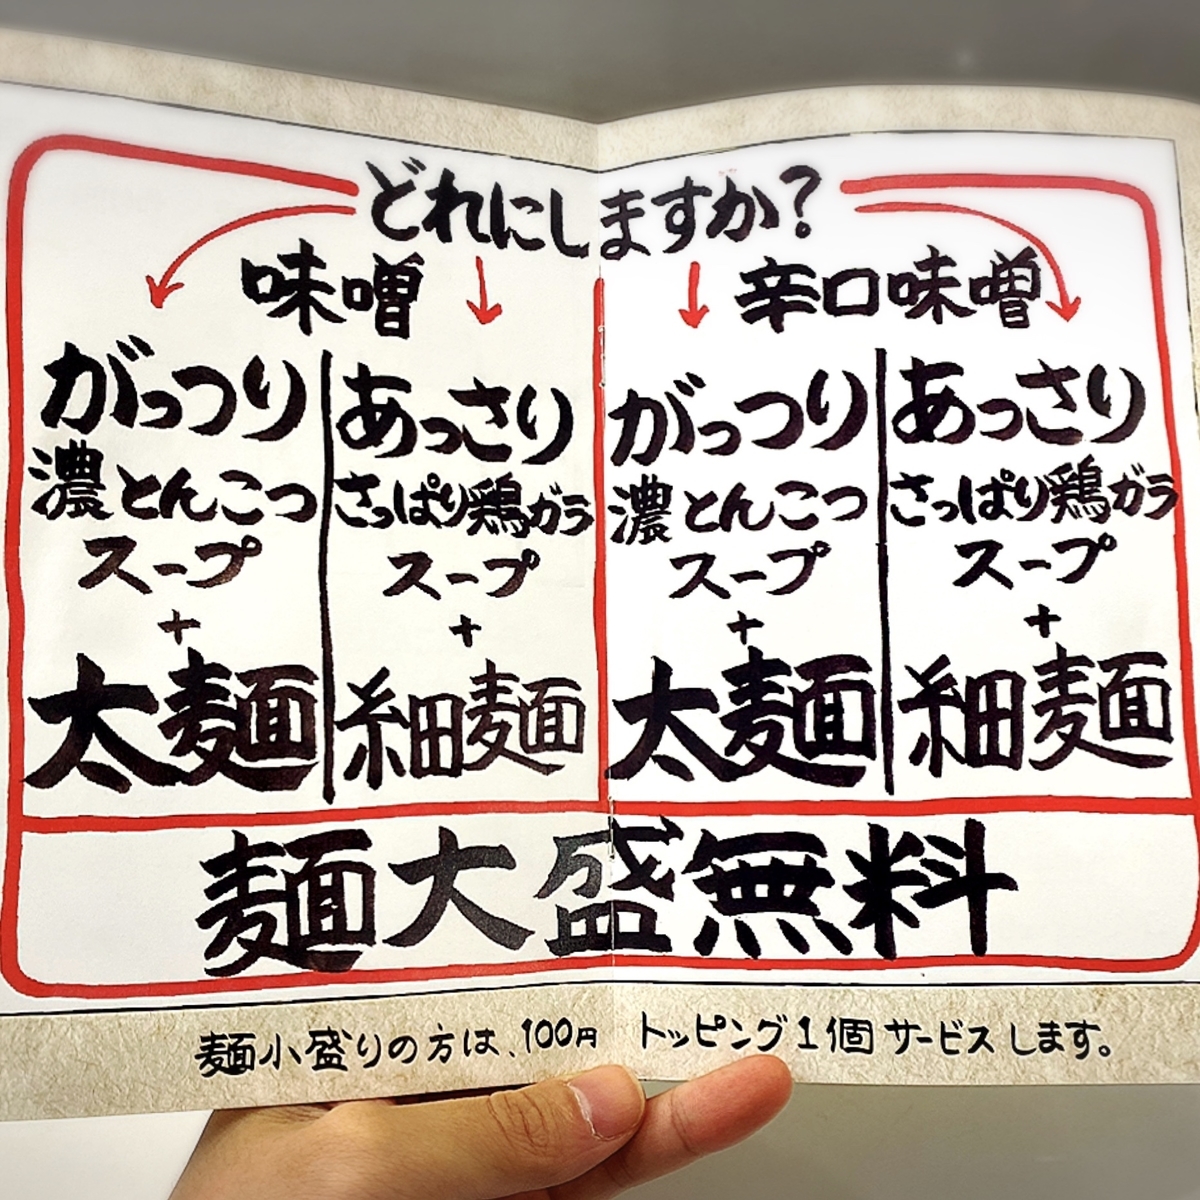 どれにしますか?
味噌
がっつり
濃とんこつ
スープ
+
太麺
あっさり
さっぱり鶏ガラ
スープ
+
細麺
辛口味噌
がっつり
濃とんこつ
スープ
+
太麺
あっさり
さっぱり鶏ガラ
スープ
+
細麺
麺大盛無料
麺小盛りの方は、100円 トッピング1個サービスします。